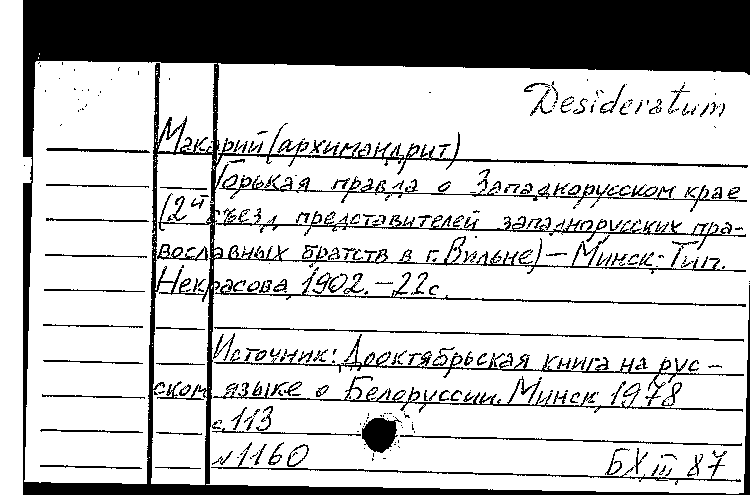 Desideratum
Макарий (архимандрит)
Горькая правда о Западнорусском крае
(2й съезд представителей западнорусских пра-
вославных братств в г. Вильне) – Минск: Тип.
Некрасова, 1902. – 22 с.
Источник: Дооктябрьская книга на рус-
ском языке о Белоруссии. Минск, 1978
с. 113
№ 1160
БХ, III, 87